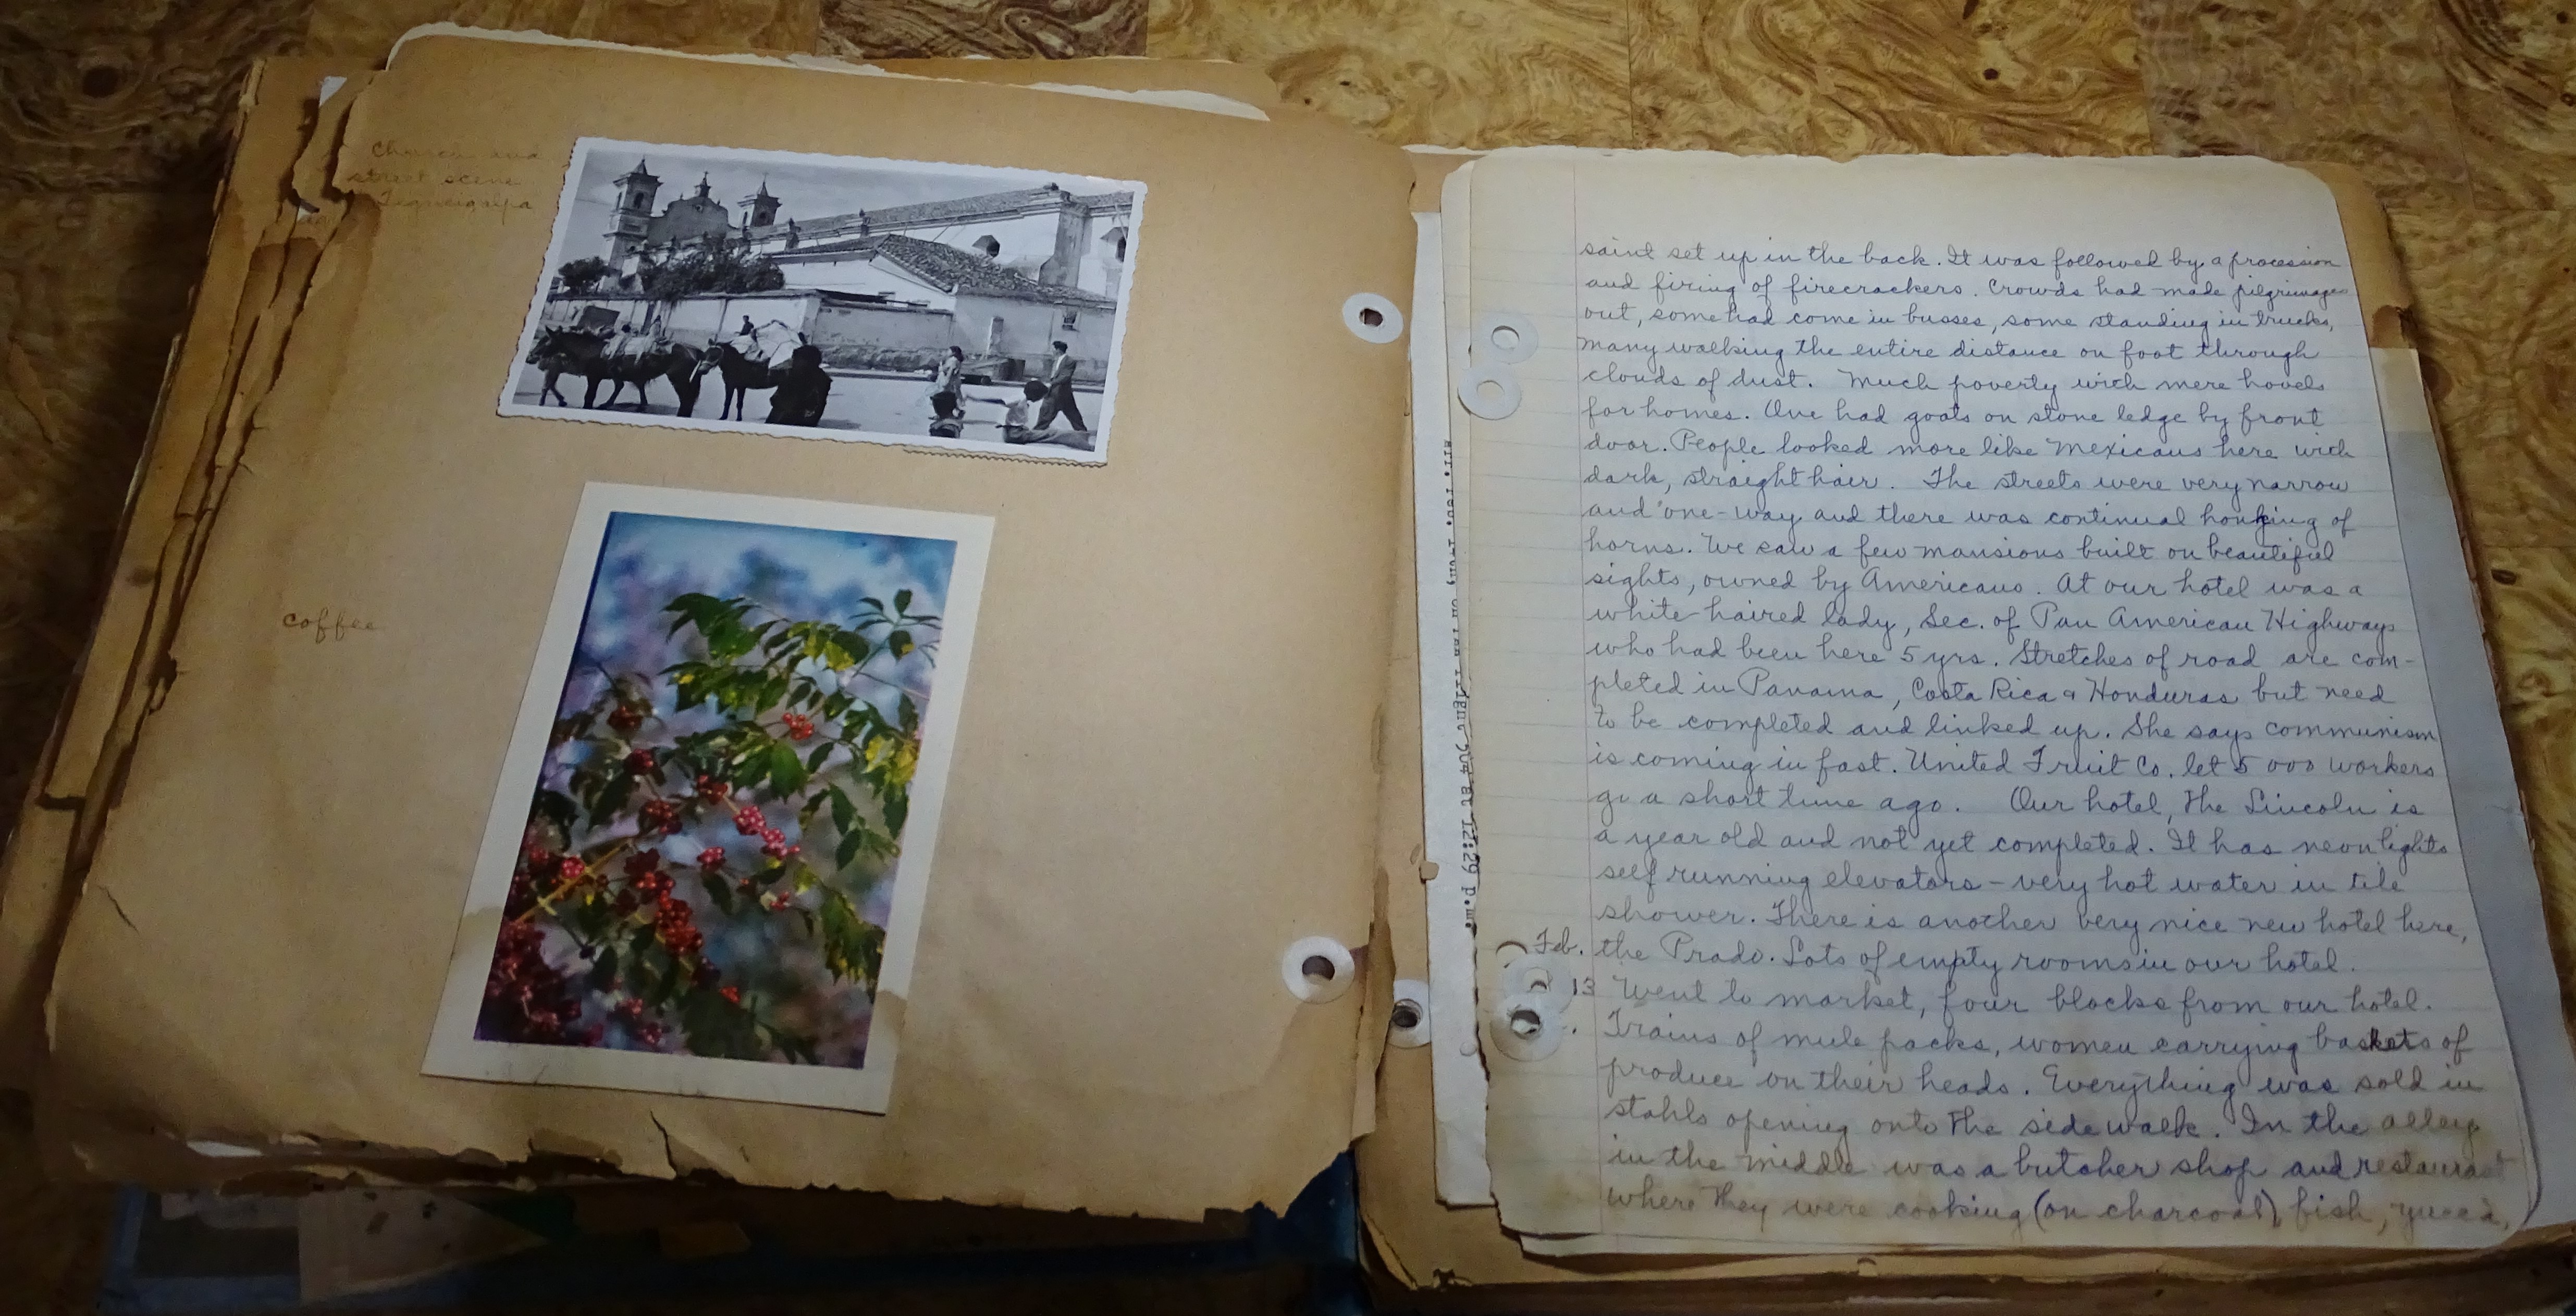 Church and
street scene
Tegucigalpa
coffee
saint set up in the back. It was followed by a procession
and firing of firecrackers. Crowds had made pilgrimages
out, some had come in busses, some standing in trucks,
many walking the entire distance on foot through
clouds of dust. Much poverty with mere hovels
for homes. One had goats on stone ledge by front
door. People looked more like Mexicans here with
dark, straight hair. The streets were very narrow
and one-way and there was continual honking of
horns. We saw a few mansions built on beautiful
sights, owned by Americans. At our hotel was a
white haired lady, Sec. of Pan American Highways
who had been here 5 yrs. Stretches of road are com-
pleted in Panama, Costa Rica & Honduras but need
to be completed and linked up. She says communism
is coming in fast. United Fruit Co. let 5 000 workers
go a short time ago. Our hotel, the Lincoln is
a year old and not yet completed. It has neon lights
self running elevators - very hot water in tile
shower. There is another very nice new hotel here,
Feb. the Prado. Lots of empty rooms in our hotel.
13 Went to market, four blocks from our hotel.
Trains of mule packs, women carrying baskets of
produce on their heads. Everything was sold in
stahls opening onto the side walk. In the alley
in the middle was a butcher shop and restaurant
where they were cooking (on charcoal) fish, yucca,
12:29 p.m.